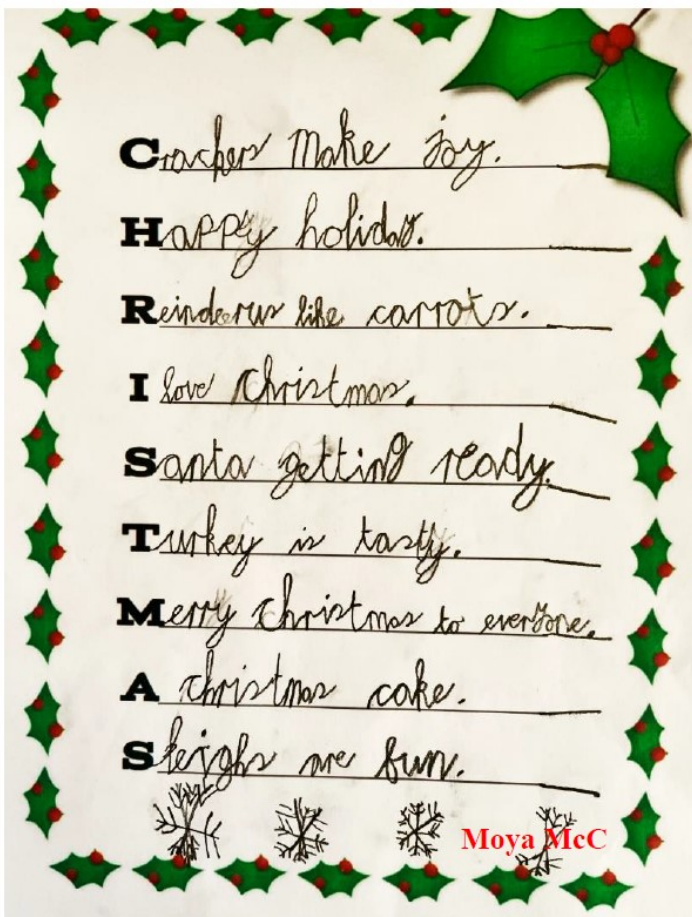 Crackers make joy.
Happy holiday.
Reindeerus like carrots.
I love Christmas.
Santa getting ready.
Turkey is tasty.
Merry Christmas to everyone.
A Christmas cake.
Sleighs are fun.
Moya McC